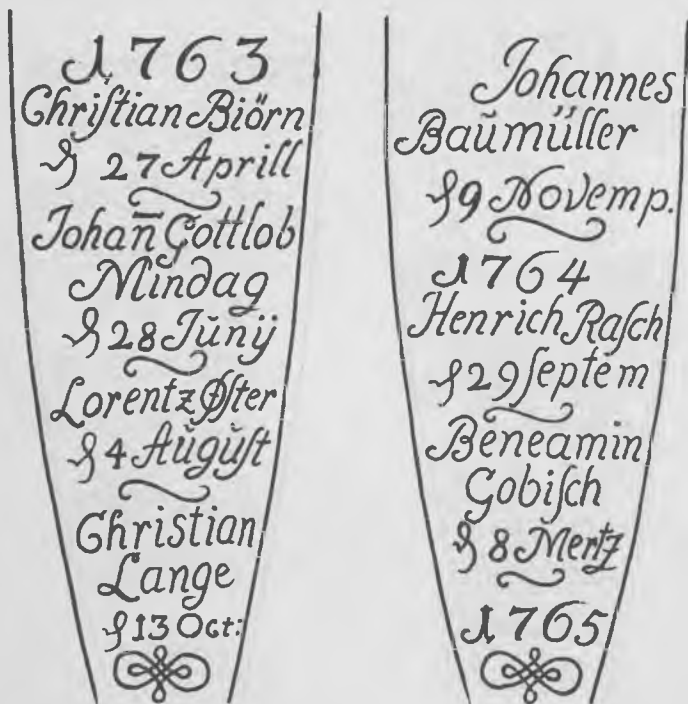 1763
Chriſtian Biörn
27 Aprill
Johan̄ Gottlob
Mindag
28 Jŭnÿ
Lorentz Øſter
4 Aŭgŭſt
Christian
Lange
13 Oct:
Johannes
Baŭmüller
9 Novemp.
1764
Henrich Raſch
29 ſeptem
Beneamin
Gobiſch
8 Mertz
1765